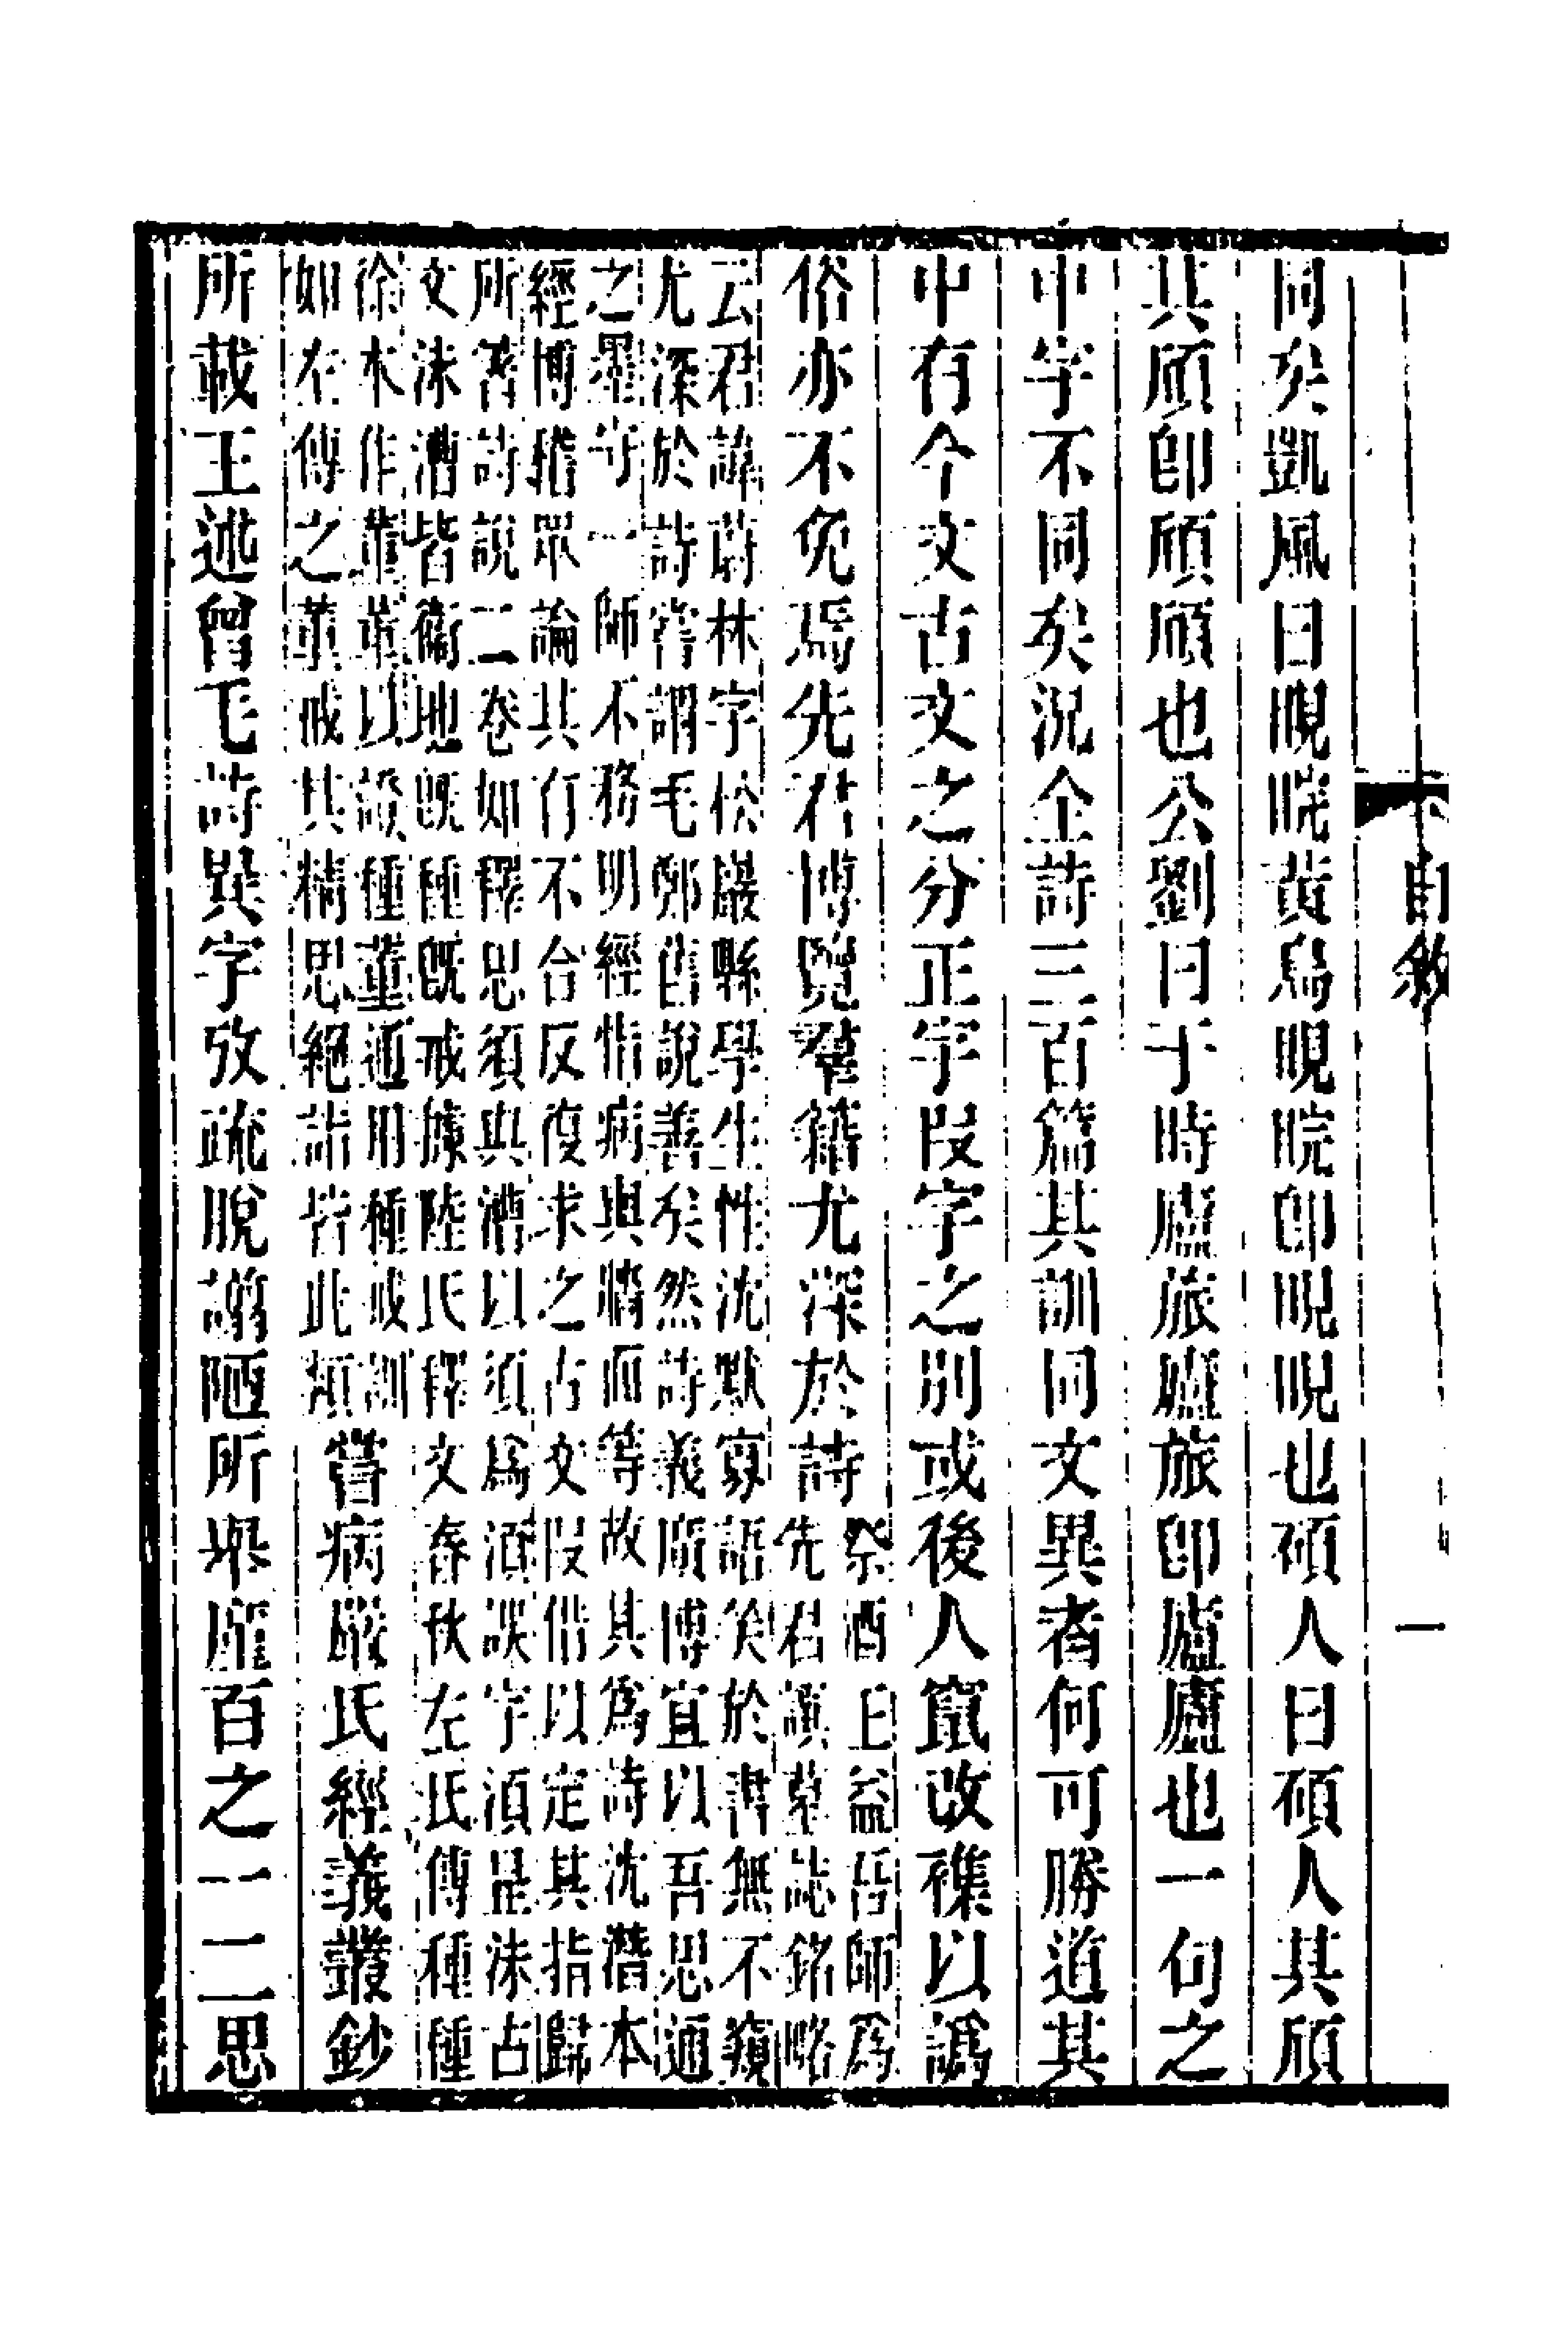 自敘　一
同矣凱風曰睍睆黃鳥睍睆卽睍睍也碩人曰碩人其頎
其頎卽頎頎也公劉曰于時廬旅廬旅卽廬廬也一句之
中字不同矣況全詩三百篇其訓同文異者何可勝道其
中有今文古文之分正字叚字之別或後人竄改襍以譌
俗亦不免焉先君博覽羣籍尤深於詩
祭酒王益吾師爲
先君譔墓誌銘略
云君諱蔚林字松巖縣學生性沈默寡語笑於書無不窺
尤深於詩嘗謂毛鄭舊說善矣然詩義廣博宜以吾思通
之墨守一師不務明經恉病與牆面等故其爲詩沈潛本
經博稽眾論其有不合反復求之古文叚借以定其指歸
所著詩說二卷如釋思須與漕以須爲湏誤字湏是沬古
文沬漕皆衞地旣種旣戒據陸氏釋文春秋左氏傳種種
徐本作董董以證種董通用種戒訓
如左傳之董戒其精思絕詣皆此類
嘗病嚴氏經義叢鈔
所載王述曾毛詩異字攷疏脫譾陋所舉廑百之一二思